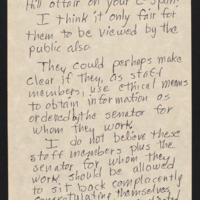 Hill affair on your C-Span,
I think it only fair for
them to be viewed by the
public also.
They could perhaps make
clear if they, as staff
members, use ethical means
to obtain information as
ordered by the senator for
whom they work.
I do not believe these
staff members plus the
senator for whom they
work should be allowed
to sit back complacently
congratulating themselves